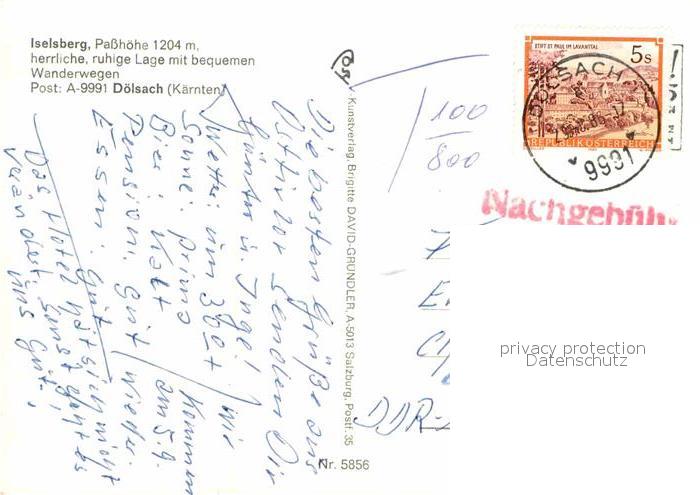 Iselsberg, Paßhöhe 1204 m,
herrliche, ruhige Lage mit bequemen
Wanderwegen
Post: A-9991 Dölsach (Kärnten)
Die besten Grüße aus
Osttirol senden Dir
Günter u. Inge!
Wetter: um 30°
Sonne: prima
Bier: kalt
Pension: gut
Essen: gut
Wir
kommen
am 5.9.
wieder.
Das Hotel hat sich nicht
verändert, sonst geht es
uns gut!
Kunstverlag Brigitte DAVID-GRUNDLER, A-5013 Salzburg, Postf. 35
Nr. 5856
100
800
STIFT ST. PAUL IM LAVANTTAL
5 S
REPUBLIK ÖSTERREICH
DÖLSACH
9991
Nachgebühr
DDR-
privacy protection
Datenschutz